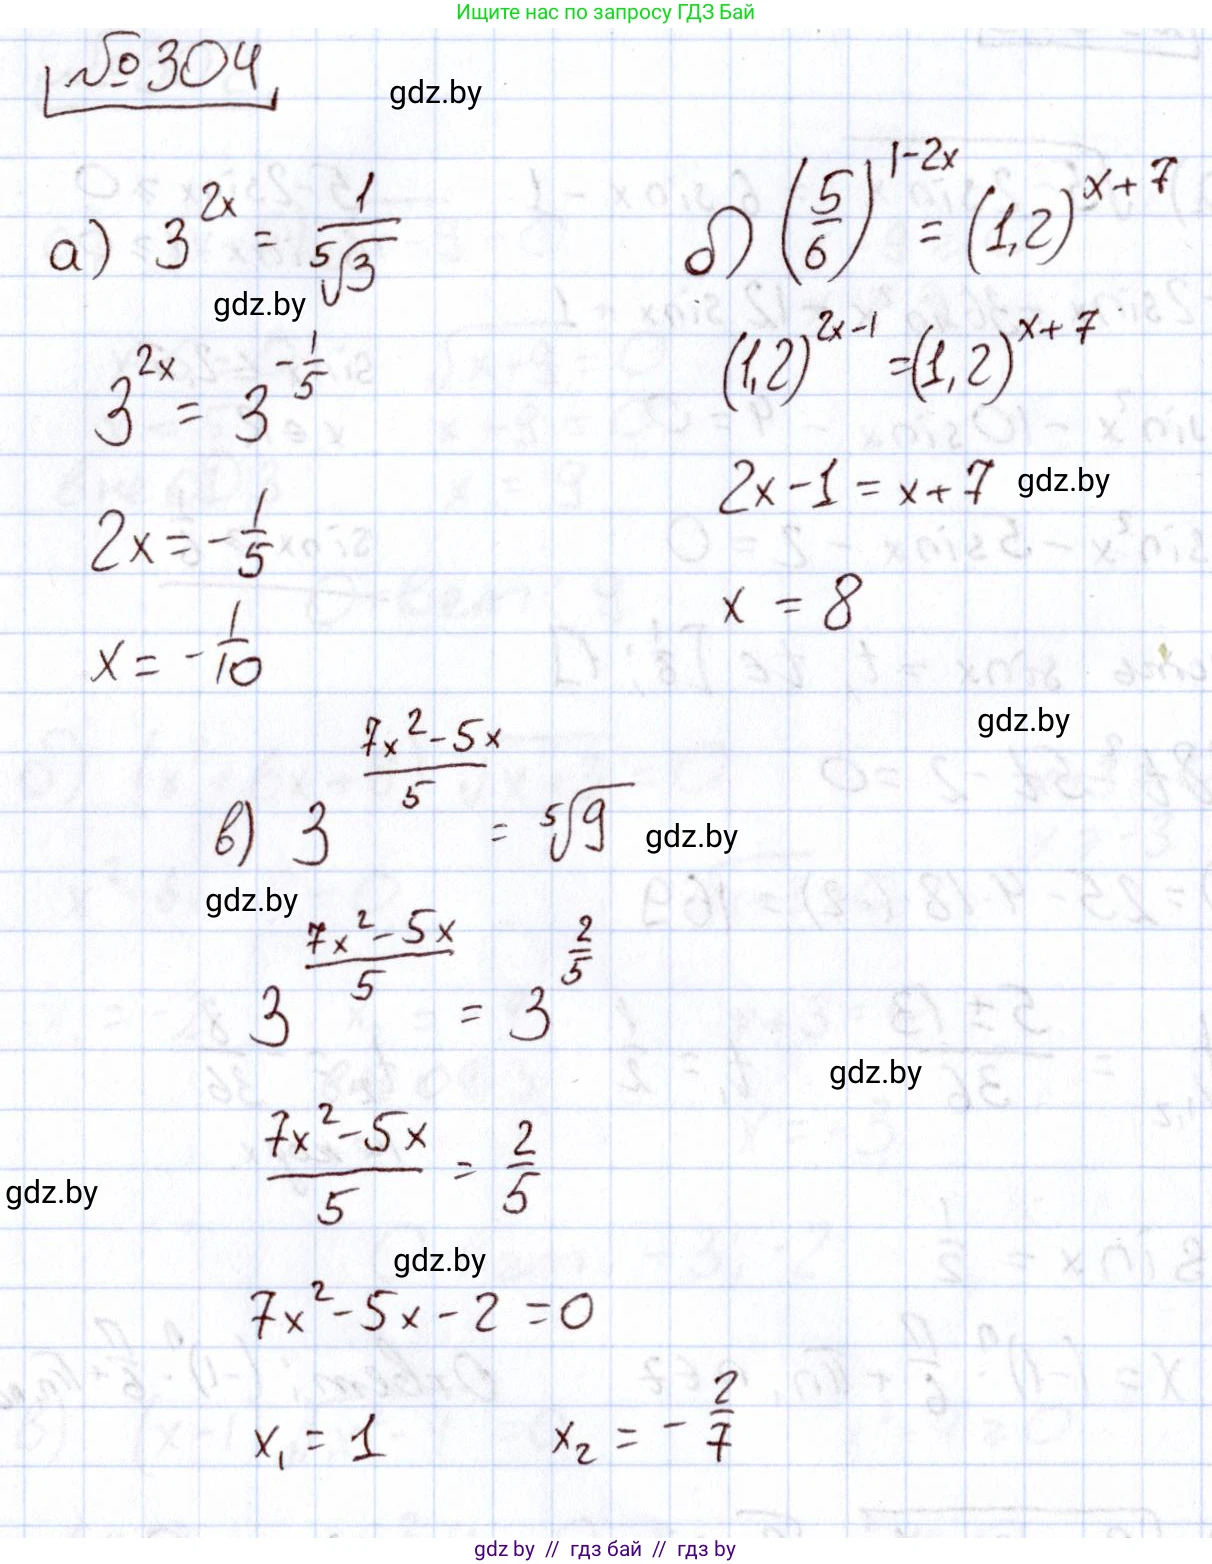 Ищите нас по запросу ГДЗ Бай
№304
gdz.by
а) 3^{2x} = \frac{1}{\sqrt[5]{3}}
gdz.by
3^{2x} = 3^{-\frac{1}{5}}
2x = -\frac{1}{5}
x = -\frac{1}{10}
б) \left(\frac{5}{6}\right)^{1-2x} = (1,2)^{x+7}
(1,2)^{2x-1} = (1,2)^{x+7}
2x-1 = x+7
gdz.by
x = 8
gdz.by
в) 3^{\frac{7x^2-5x}{5}} = \sqrt[5]{9}
gdz.by
gdz.by
3^{\frac{7x^2-5x}{5}} = 3^{\frac{2}{5}}
gdz.by
\frac{7x^2-5x}{5} = \frac{2}{5}
gdz.by
gdz.by
7x^2-5x-2=0
x_1 = 1 x_2 = -\frac{2}{7}
gdz.by // гдз бай // gdz.by